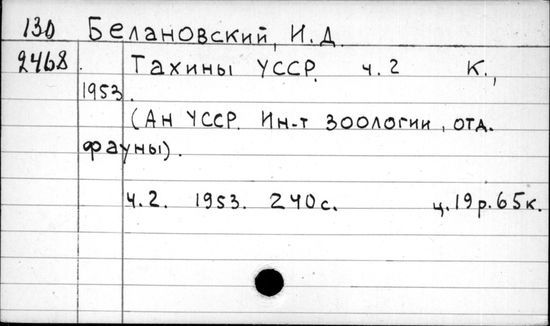 130 Белановский, И.Д.
2468 Тахины УССР. ч. 2 К.,
1953.
(АН УССР. Ин-т зоологии, отд.
фауны).
ч.2. 1953. 240с. ц.19р.65к.